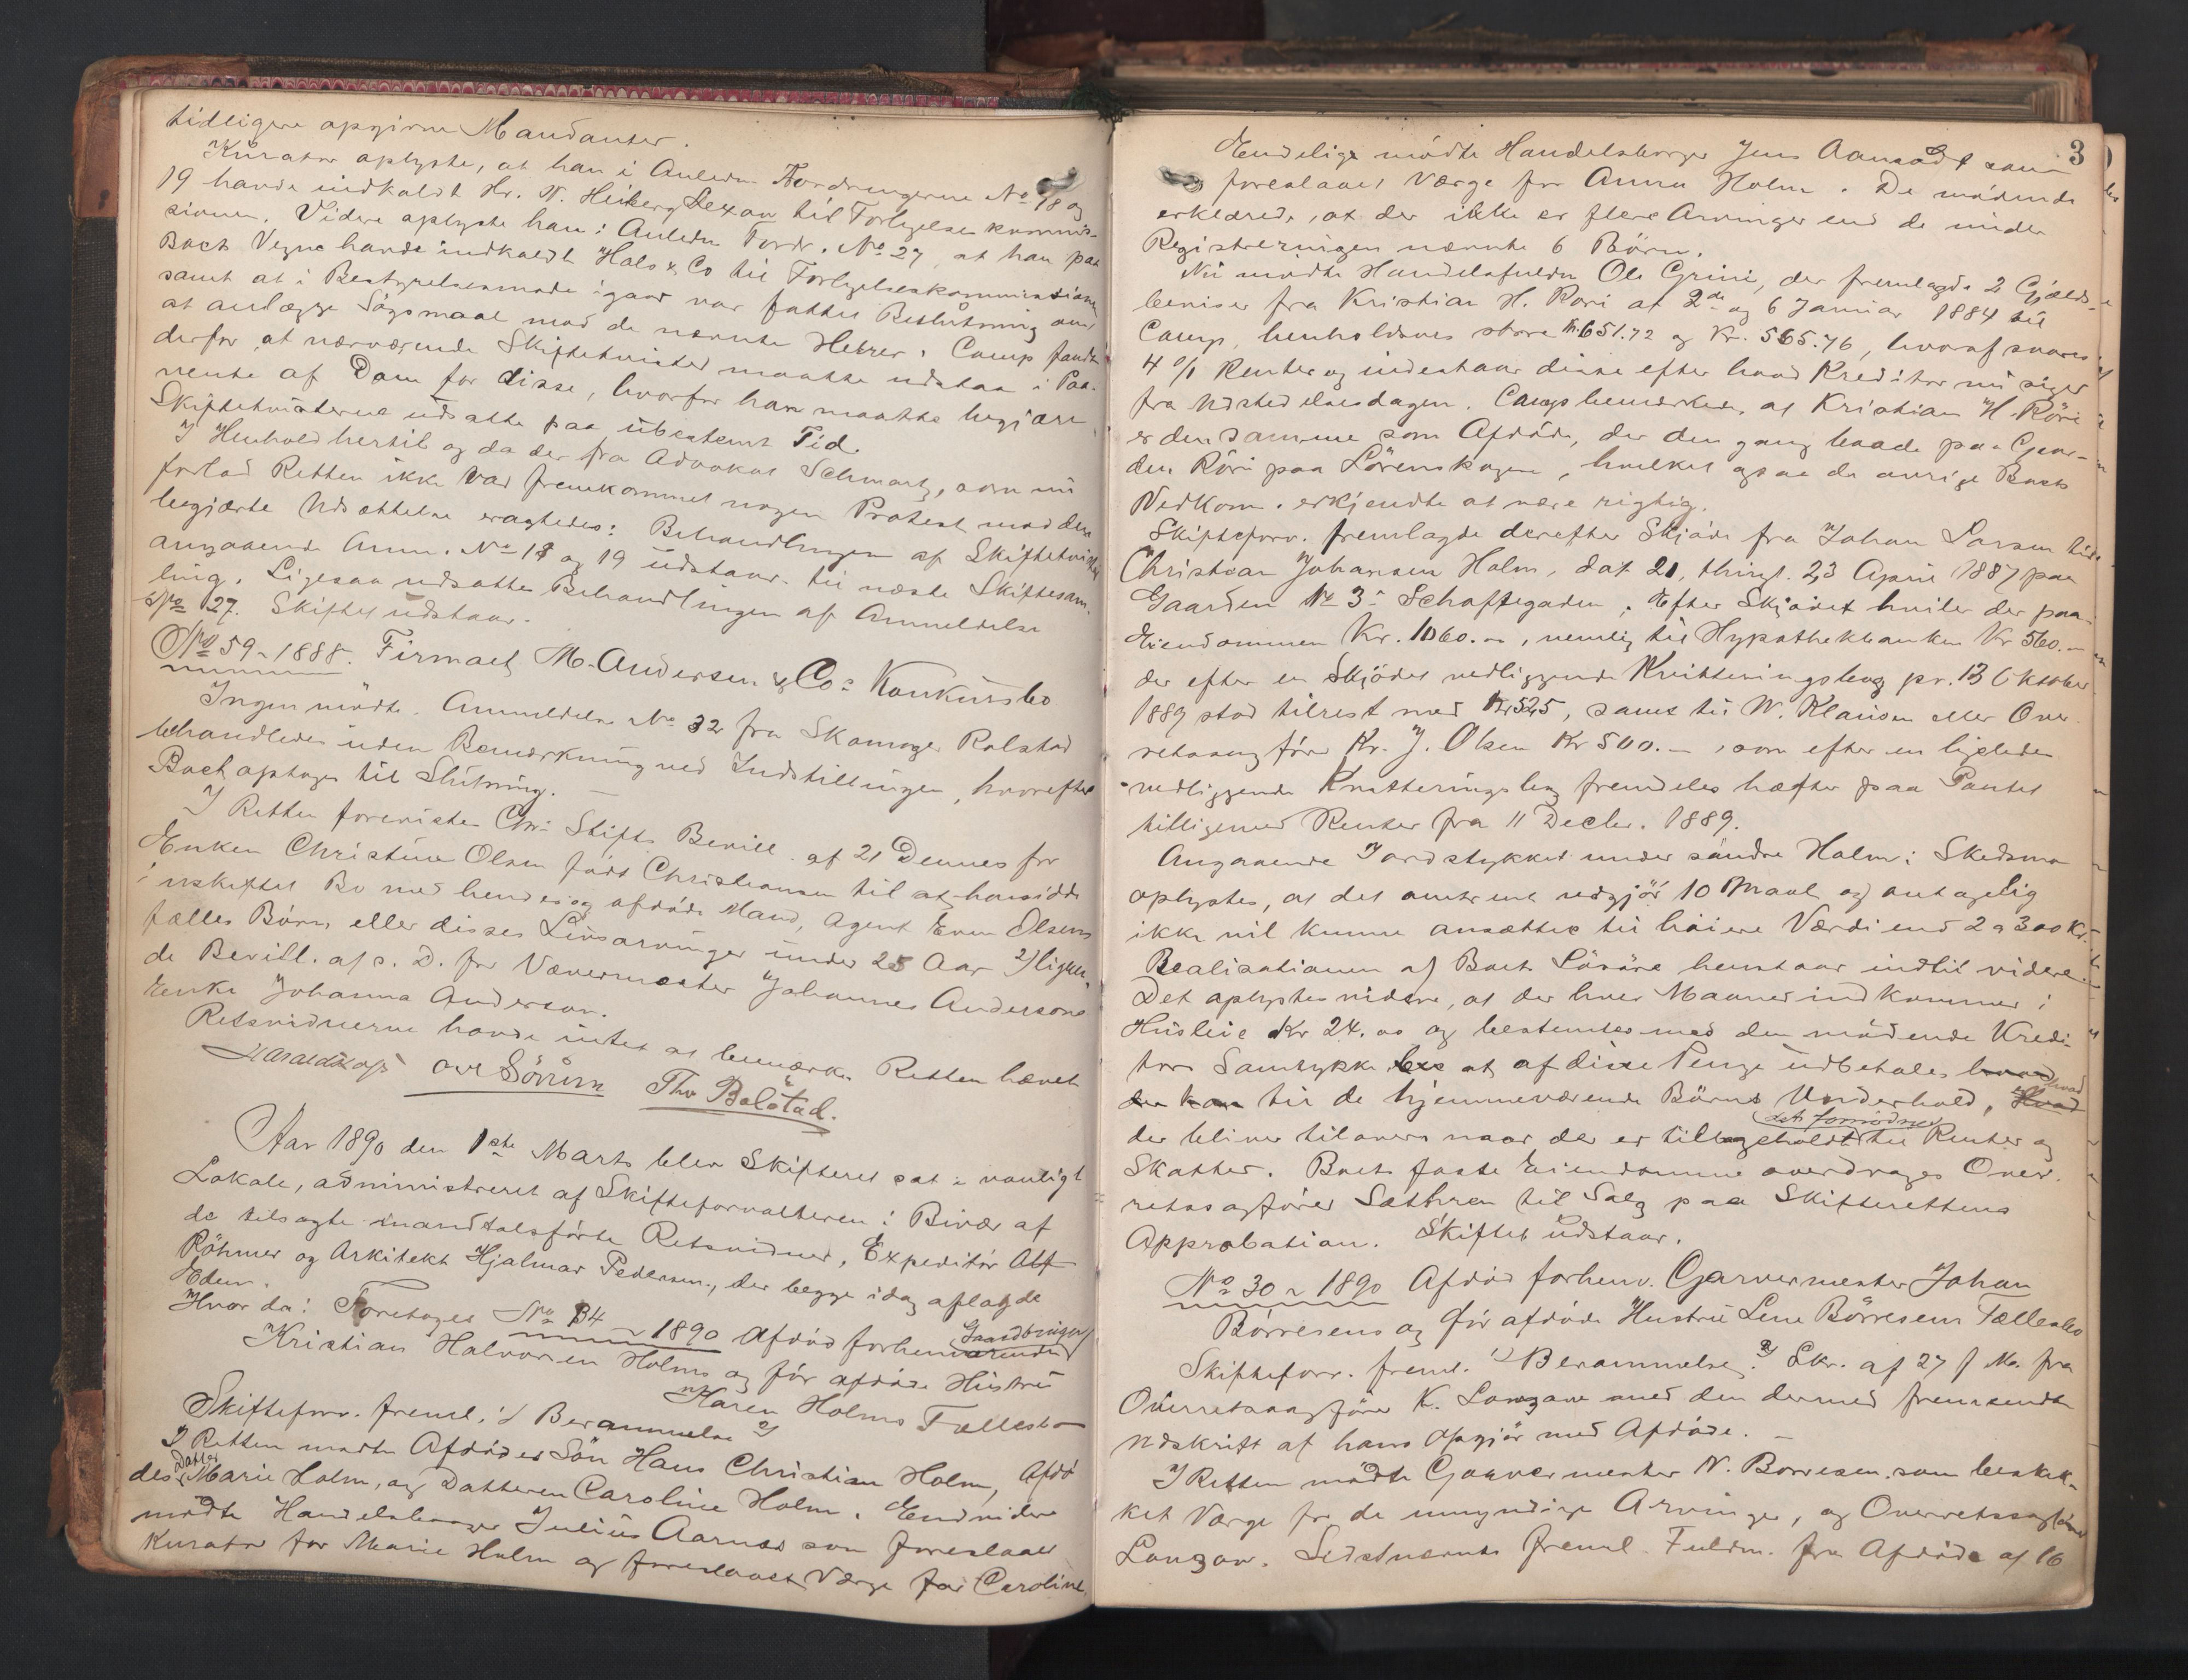 tidligere opgivne Mandanter.
Kurator oplyste, at han i Anledn Fordringerne No 18 og
19 havde indkaldt Hr. N. Heiberg Lexow til Forligelseskommis-
sionen. Videre oplyste han i Anledn Fordr. No 27, at han paa
Boets Vegne havde indkaldt Hals & Co til Forligelseskommissionen
samt at i Bestyrelsesmøde igaar var fattet Beslutning om
at anlægge Søgsmaal mod de nævnte Herrer. Camp fandt
derfor at nærværende Skiftetvister maatte udstaa i Paa-
vente af Dom for disse, hvorfor han maatte begjære
Skiftetvisterne udsatte paa ubestemt Tid.
I Henhold hertil og da der fra Advokat Schwartz, som nu
forlod Retten ikke var fremkommet nogen Protest mod den
begjærte Udsættelse eragtedes: Behandlingen af Skiftetvisten
angaaende Anm. No 18 og 19 udstaar til næste Skiftesam-
ling. Ligesaa udsattes Behandlingen af Anmeldelse
No 27. Skiftet udstaar.
No 59 - 1888. Firmaet M. Andersen & Co: Konkursbo
Ingen mødte. Anmeldelse No 32 fra Skomager Rolstad
behandledes uden Bemærkning ved Indstillingen, hvorefter
Boet optages til Slutning. —
I Retten forevistes Chr: Stifts Bevill. af 21 Dennes for
Enken Christine Olsen født Christiansen til at hensidde
i uskiftet Bo med hendes og afdøde Mand, Agent Even Olsens
fælles Børn eller disses Livsarvinger under 25 Aar 2) ligeledes
de Bevill. af s. D. for Vævermester Johannes Andersons
Enke Johanna Anderson.
Retsvidnerne havde intet at bemærke. Retten hævet
Ove Sörum Thv Bolstad.
Aar 1890 den 1ste Marts blev Skifteret sat i vanligt
Lokale, administreret af Skifteforvalteren i Bivær af
de tilsagte mandtalsførte Retsvidner, Expeditör Alf
Röhmer og Arkitekt Hjalmar Pedersen, der begge idag aflagde
Eden.
Hvor da: Foretoges No 34 - 1890 Afdød forhenværende Gaardbruger
Kristian Halvorsen Holms og før afdøde Hustru
Karen Holms Fællesbo
Skifteforv. freml. 1) Berammelse 2)
I Retten mødte Afdødes Søn Hans Christian Holm, Afdø-
des Datter Marie Holm, og Datteren Caroline Holm. Endvidere
mødte Handelsborger Julius Aarnæs som foreslaaet
Kurator for Marie Holm og foreslaaet Værge for Caroline.
3
Endelige mødte Handelsborger Jens Aamodt som
foreslaaet Værge for Anna Holm. De mødende
erklærede, at der ikke er flere Arvinger end de under
Registreringen nævnte 6 Børn.
Nu mødte Handelsfuldm Ole Grini, der fremlagde 2 Gjælds-
beviser fra Kristian H. Røri af 2de og 6 Januar 1884 til
Camp, henholdsvis store Kr. 651.72 og Kr. 565.76, hvoraf svares
4 % Renter og indestaar disse efter hvad Kreditor nu siger
fra Udstedelsesdagen. Camp bemærkede, at Kristian H. Röri
er den samme som Afdøde, der den gang boede paa Gaar-
den Röri paa Lörenskogen, hvilket ogsaa de øvrige Boets
Vedkom. erkjendte at være rigtig.
Skifteforv. fremlagde derefter Skjøde fra Johan Larsen til
Christian Johansen Holm, dat. 21, thingl. 23 April 1887 paa
Gaarden No 3 i Schaftegaden. Efter Skjødet hviler der paa
Eiendommen Kr. 1060.-, nemlig til Hypothekbanken Kr 560.-
der efter en Skjødet vedliggende Kvitteringsbog pr. 13 Oktober
1889 stod tilrest med Kr 525, samt til W. Klausen eller Over-
retssagfører Kr. J. Olsen Kr 500.-, som efter en ligeledes
vedliggende Kvitteringsbog fremdeles hæfter paa Pantet
tilligemed Renter fra 11 Decbr. 1889.
Angaaende Jordstykket under søndre Holm i Skedsmo
oplystes, at det omtrent udgjør 10 Maal og antagelig
ikke vil kunne ansættes til høiere Værdi end 2 a 300 Kr.
Realisationen af Boets Løsøre henstaar indtil videre.
Det oplystes videre, at der hver Maaned indkommer i
Husleie Kr 24.00 og bestemtes med den mødende Kredi-
tors Samtykke at af disse Penge udbetales
til de hjemmeværende Børns Underhold, hvad
der bliver tilovers naar der er tilbageholdt det fornødne til Renter og
Skatter. Boets faste Eiendomme overdrages Over-
retssagfører Sæthren til Salg paa Skifterettens
Approbation. Skiftet udstaar.
No 30 - 1890 Afdød forhenv. Garvermester Johan
Börresens og før afdøde Hustru Lene Börresens Fællesbo
Skifteforv. freml. 1) Berammelse 2) Skr. af 27 f. M. fra
Overretssagfører K. Longow med den dermed fremsendte
Udskrift af hans Opgjør med Afdøde. —
I Retten mødte Garvermester N. Borresen som beskik-
ket Værge for de umyndige Arvinger, og Overretssagfører
Longow. Sidstnævnte freml. Fuldm. fra Afdøde af 16